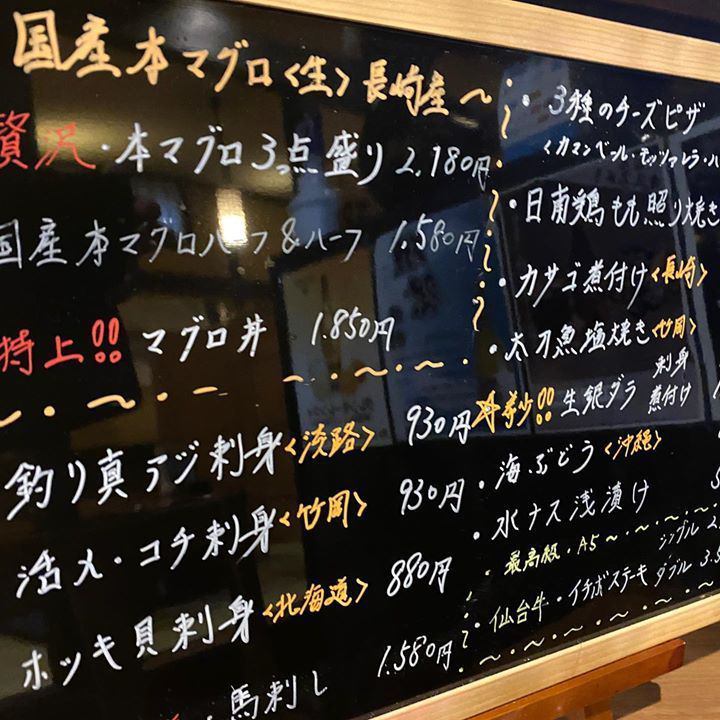 国産本マグロ<生>長崎産~
贅沢・本マグロ3っ点盛り 2.180円
国産本マグロハーフ&ハーフ 1.580円
特上!! マグロ丼 1.850円
釣り真アジ刺身<淡路> 930円
活〆・コチ刺身<竹岡> 930円
ホッキ貝刺身<北海道> 880円
馬刺し 1.580円
・3種のチーズピザ
<カマンベール・モッツァレラ・
・日南鶏もも照り焼き
・カサゴ煮付け<長崎>
・太刀魚塩焼き<竹岡>
生銀ダラ 刺身 煮付け
・海ぶどう<沖縄>
・水ナス浅漬け
・最高級・A5~ シングル
・仙台牛・イチボステーキ ダブル 3.5